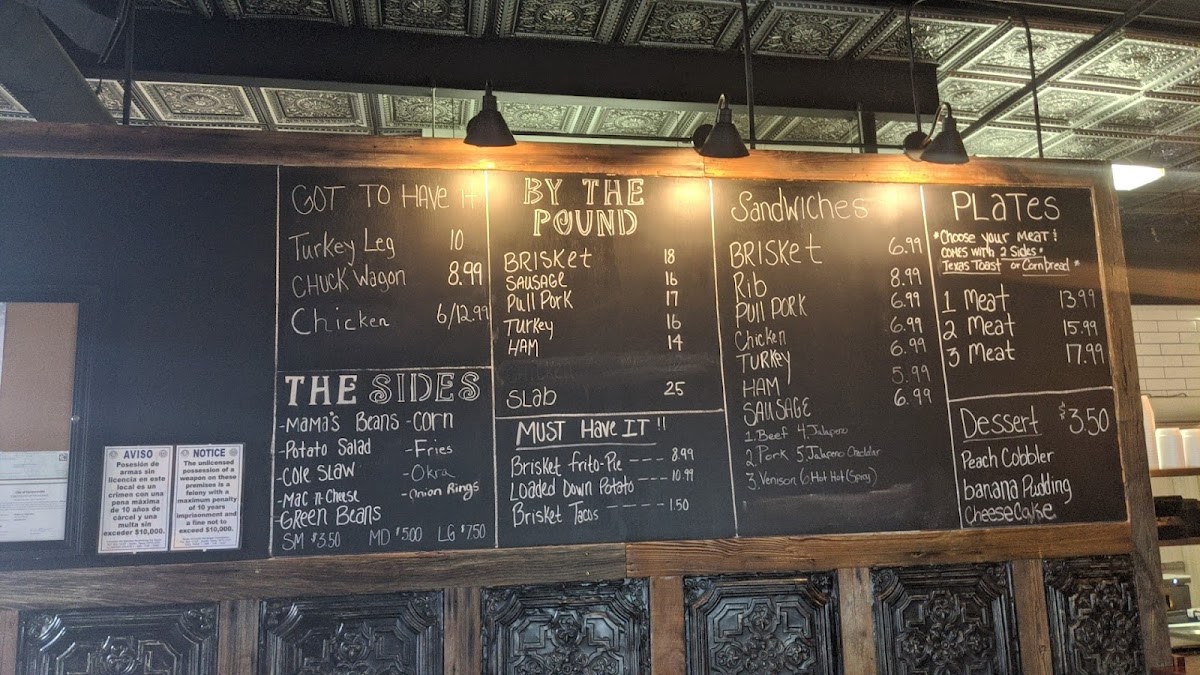 GOT TO HAVE IT
Turkey Leg 10
CHUCK Wagon 8.99
Chicken 6/12.99
THE SIDES
-MAMA'S Beans -CORN
-Potato Salad -Fries
-Cole Slaw -Okra
-Mac n Cheese -Onion Rings
-GREEN Beans
SM $3.50 MD $5.00 LG $7.50
BY THE
POUND
BRISKET 18
SAUSAGE 16
Pull Pork 17
Turkey 16
HAM 14
Slab 25
MUST HAVE IT !!
Brisket Frito-Pie --- 8.99
Loaded Down Potato --- 10.99
Brisket Tacos ---- 1.50
Sandwiches
BRISKET 6.99
Rib 8.99
Pull PORK 6.99
Chicken 6.99
TURKEY 6.99
HAM 5.99
SAUSAGE 6.99
1. Beef 4. Jalapeno
2. Pork 5. Jalapeno Cheddar
3. Venison 6. Hot Hot (Spicy)
PLATES
*Choose your MEAT!
COMES with 2 Sides &
Texas Toast or Cornbread *
1 Meat 13.99
2 Meat 15.99
3 Meat 17.99
Dessert $3.50
Peach Cobbler
banana Pudding
Cheesecake
AVISO
Posesión de
armas sin
licencia en este
local es un
crimen con una
pena máxima
de 10 años de
cárcel y una
multa sin
exceder $10,000.
NOTICE
The unlicensed
possession of a
weapon on these
premises is a
felony with a
maximum penalty
of 10 years
imprisonment and
a fine not to
exceed $10,000.